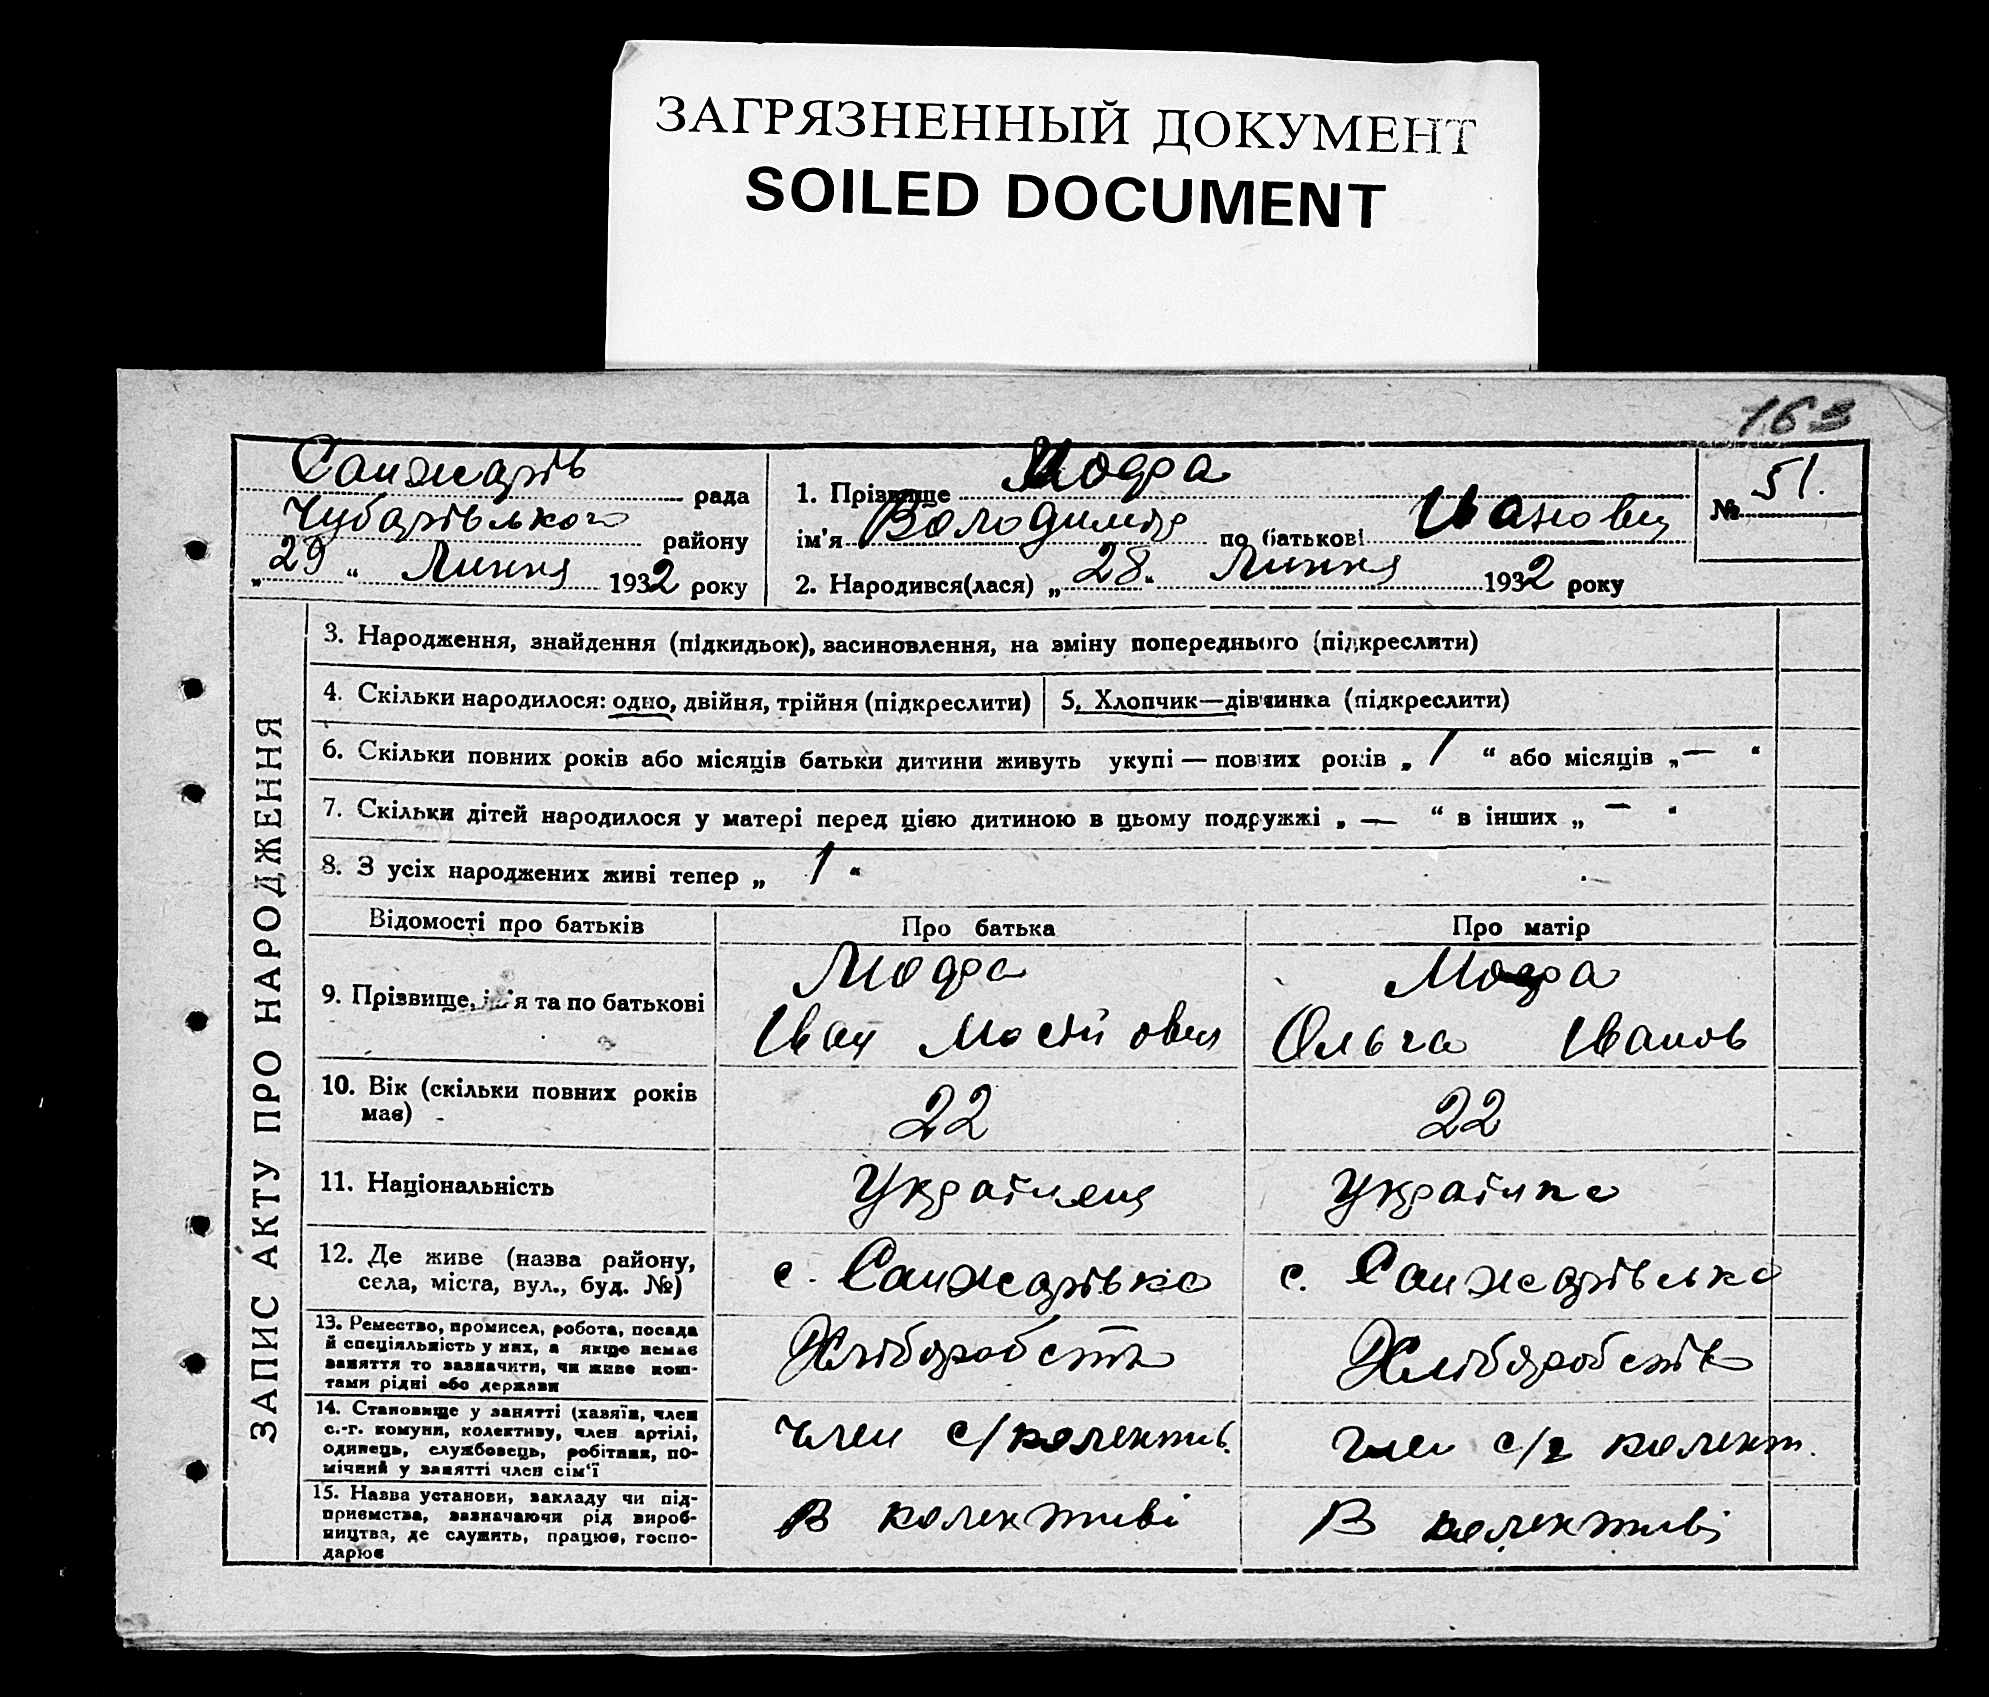 ЗАГРЯЗНЕННЫЙ ДОКУМЕНТ
SOILED DOCUMENT
163
Санжарів рада
Чубарівського району
„ 29 “ Липня 1932 року
1. Прізвище Модра
ім'я Володимир по батькові Іванович
2. Народився(лася) „ 28 “ Липня 1932 року
№ 51.
ЗАПИС АКТУ ПРО НАРОДЖЕННЯ
3. Народження, знайдення (підкидьок), васиновлення, на зміну попереднього (підкреслити)
4. Скільки народилося: одно, двійня, трійня (підкреслити)
5. Хлопчик—дівчинка (підкреслити)
6. Скільки повних років або місяців батьки дитини живуть укупі — повних років „ 1 “ або місяців „ — “
7. Скільки дітей народилося у матері перед цією дитиною в цьому подружжі „ — “ в інших „ — “
8. З усіх народжених живі тепер „ 1 “
Відомості про батьків
Про батька
Про матір
9. Прізвище, ім'я та по батькові
Модра
Іван
Модра
Ольга Іванов
10. Вік (скільки повних років
має)
22
22
11. Національність
Українец
Українка
12. Де живе (назва району,
села, міста, вул., буд. №)
с. Санжарівка
с. Санжарівська
13. Ремество, промисел, робота, посада
й спеціяльність у них, а якщо немає
заняття то зазначити, чи живе кош-
тами рідні або держави
Хліборобств
Хліборобств
14. Становище у занятті (хазяїн, член
с.-г. комуни, колективу, член артілі,
одинець, службовець, робітник, по-
мічний у занятті член сім'ї
член с/колектив.
член с/г колект.
15. Назва установи, закладу чи під-
приємства, зазначаючи рід вироб-
ництва, де служить, працює, госпо-
дарює
В колективі
В колективі